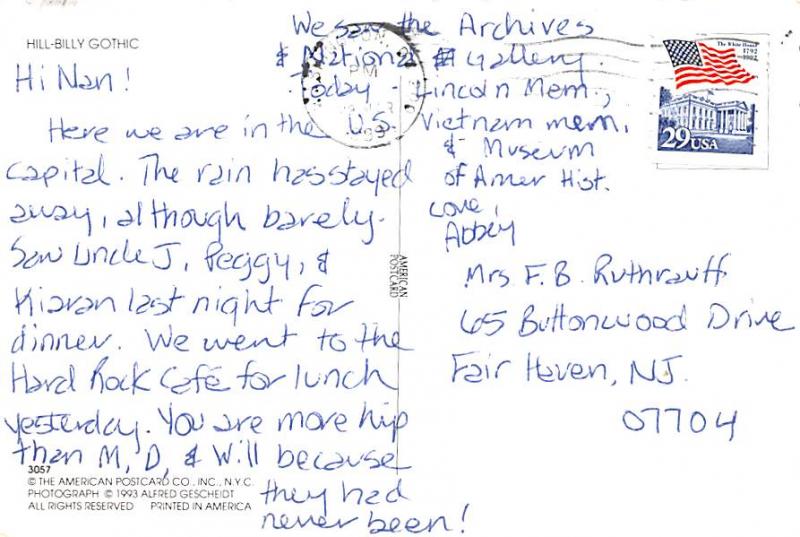 HILL-BILLY GOTHIC
Hi Nan!
Here we are in the U.S.
Capital. The rain has stayed
away, although barely.
Saw Uncle J, Peggy, &
Kiaran last night for
dinner. We went to the
Hard Rock Café for lunch
yesterday. You are more hip
than M, D, & Will because
they had
never been!
We saw the Archives
& National Gallery.
Today - Lincoln Mem.,
Vietnam mem.
& Museum
of Amer Hist.
Love,
Abbey
PM
The White House
1792
1992
29 USA
AMERICAN
POSTCARD
Mrs F. B. Ruthrauff
65 Buttonwood Drive
Fair Haven, NJ.
07704
3057
© THE AMERICAN POSTCARD CO., INC., N.Y.C.
PHOTOGRAPH © 1993 ALFRED GESCHEIDT
ALL RIGHTS RESERVED PRINTED IN AMERICA